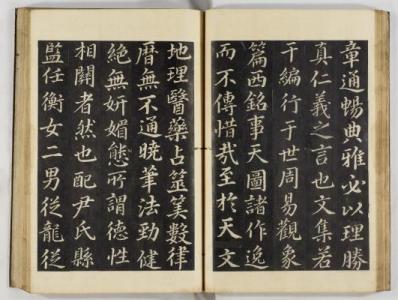 章通暢典雅必以理勝
真仁義之言也文集若
干編行于世周易觀象
篇西銘事天圖諸作逸
而不傳惜哉至於天文
地理醫藥占筮筭數律
曆無不通曉筆法勁健
絶無妍媚態所謂德性
相關者然也配尹氏縣
監任衡女二男從龍從